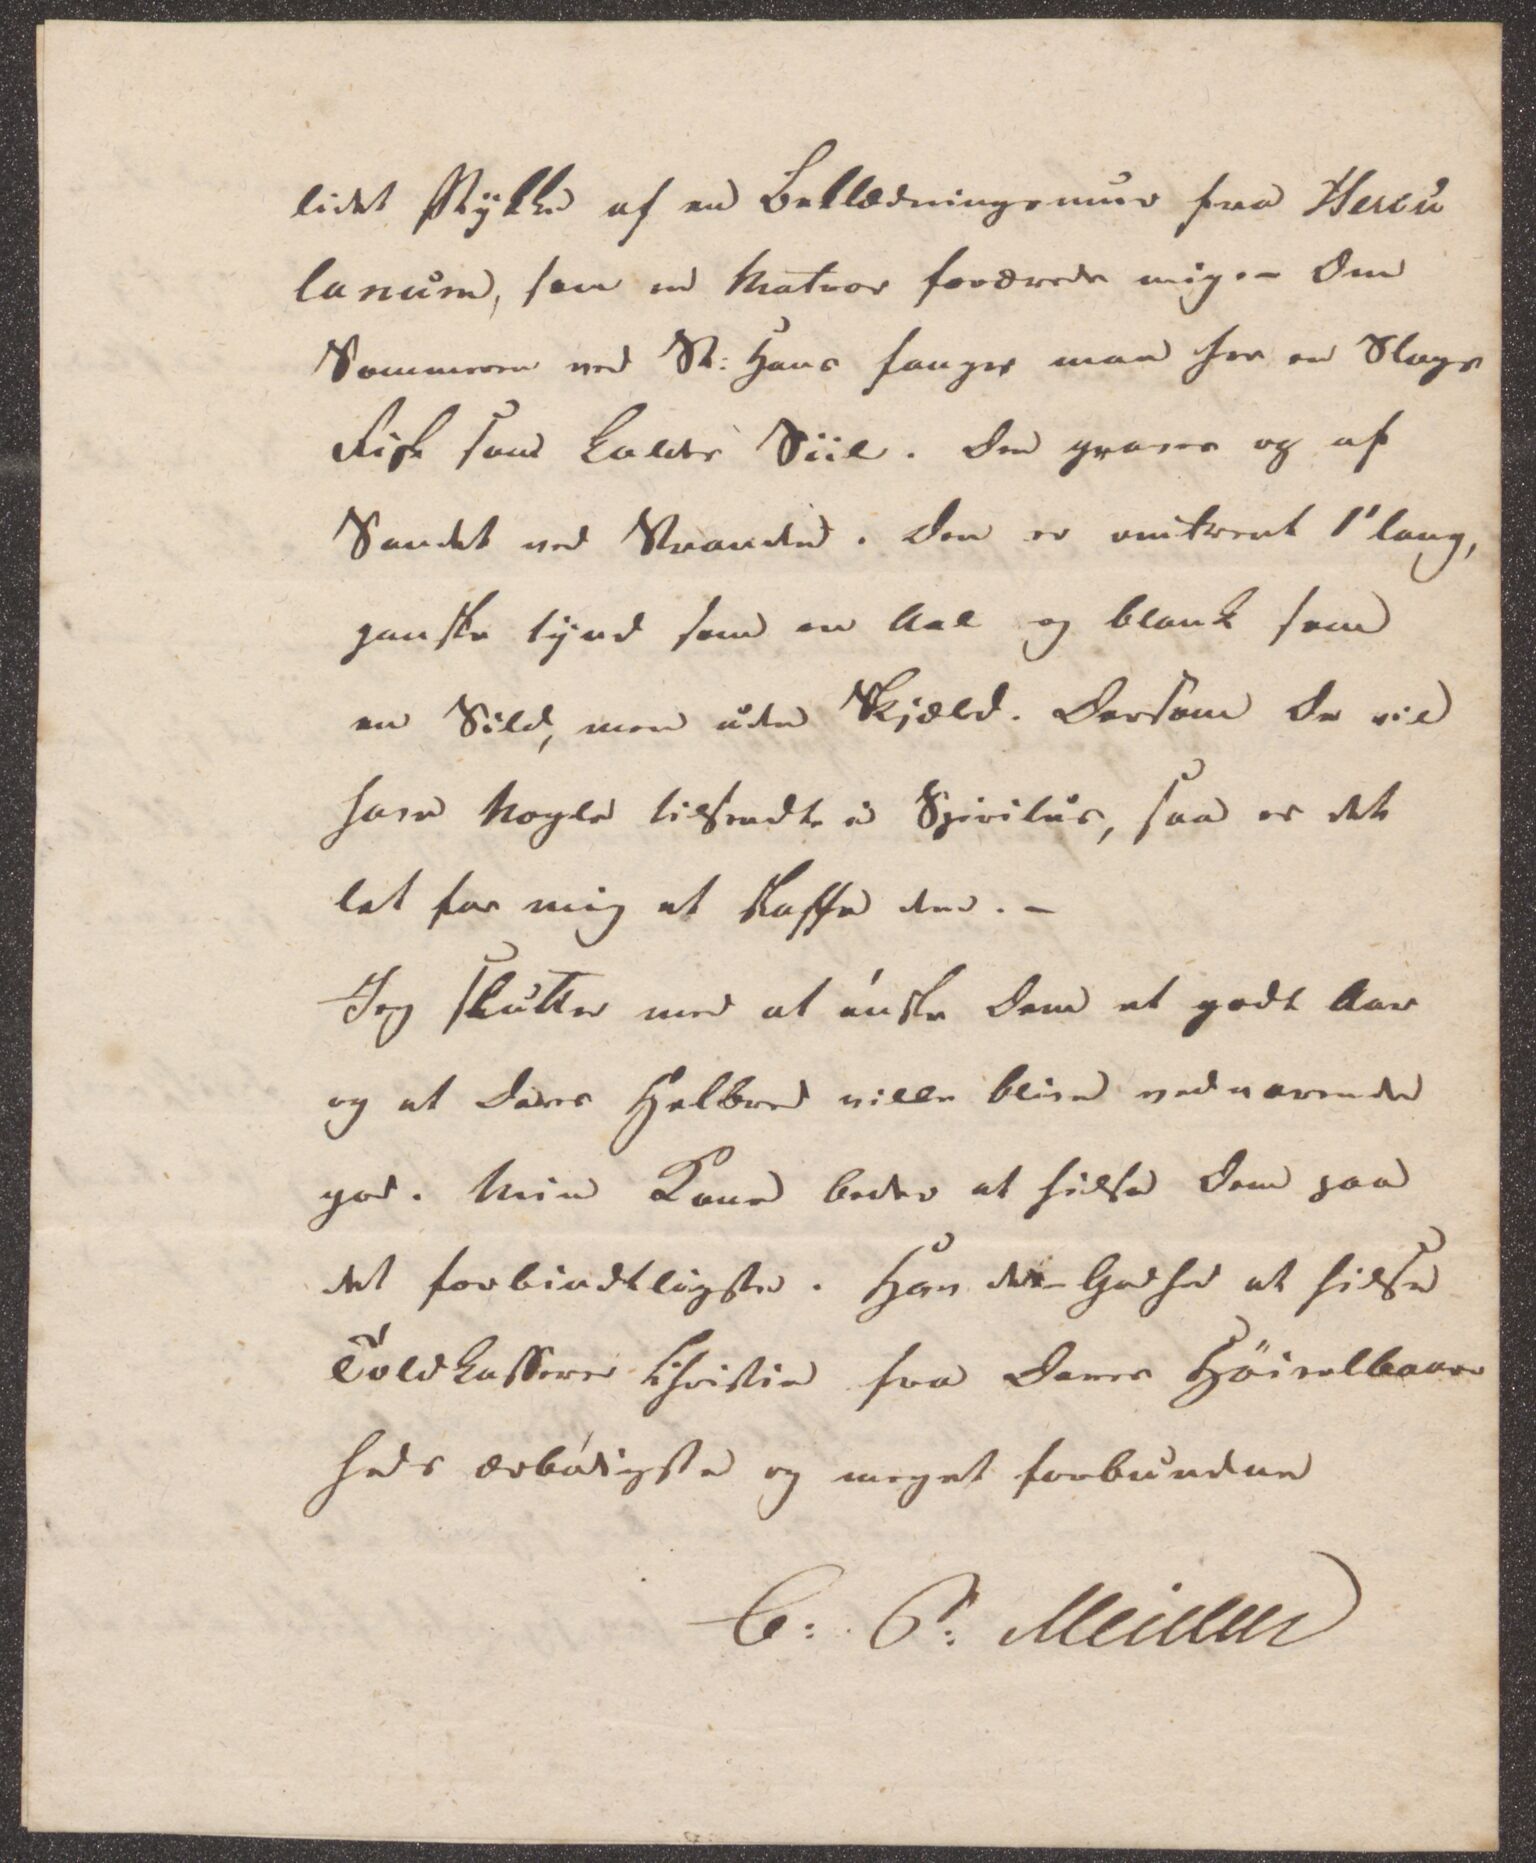 lidet Stÿkke af en Beklædningsmuur fra Hercu
lanum, som en Matros forærede mig. – Om
Sommeren ved St: Hans fanges man her en Slags
Fisk som kaldes Siil. Den graves og af
Sandet ved Stranden. Den er omtrent 1' lang,
ganske tÿnd som en Aal og blank som
en Sild, men uden Skjæld. Dersom De vil
have nogle tilsendte i Spiritus, saa er det
let for mig at skaffe dem. –
Jeg slutter med at ónske Dem et godt Aar
og at Deres Helbred ville blive vedvarende
god. Min Kone beder at hilse Dem paa
det forbindtligste. Hav den Godhed at hilse
Toldkasserer Christie fra Deres Höivelbaaren
heds ærbódigste og meget forbundne
C: P: